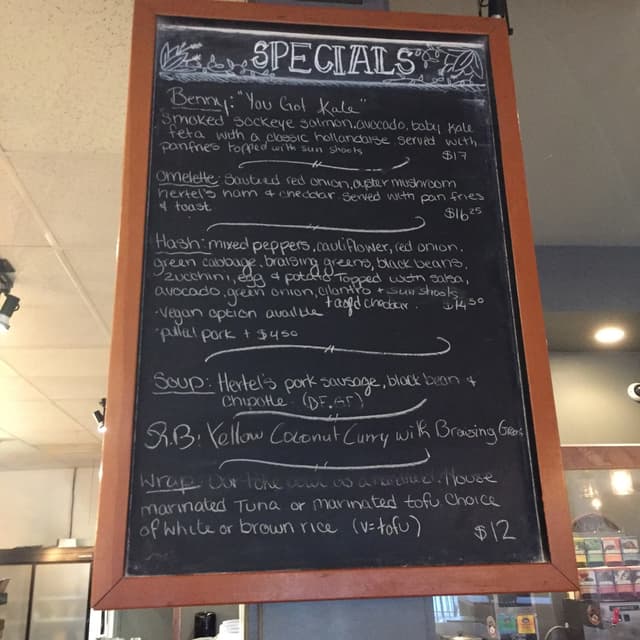 SPECIALS
Benny: "You Got Kale"
Smoked sockeye salmon, avocado, baby kale
feta with a classic hollandaise served with
panfries topped with sun shoots
$17
omelette: Sauteed red onion, oyster mushroom
hertel's ham & cheddar served with pan fries
& toast $16.25
Hash: mixed peppers, cauliflower, red onion,
green cabbage, braising greens, black beans,
zucchini, egg & potato topped with salsa,
avocado, green onion, cilantro + sun shoots
+ aged cheddar. $14.50
·vegan option
·pulled pork + $4.50
Soup: Hertel's pork sausage, black bean &
chipotle (DF, GF)
S.B: Yellow Coconut Curry with Braising Greens
Wrap: Our House
marinated Tuna or marinated tofu Choice
of white or brown rice (v=tofu) $12